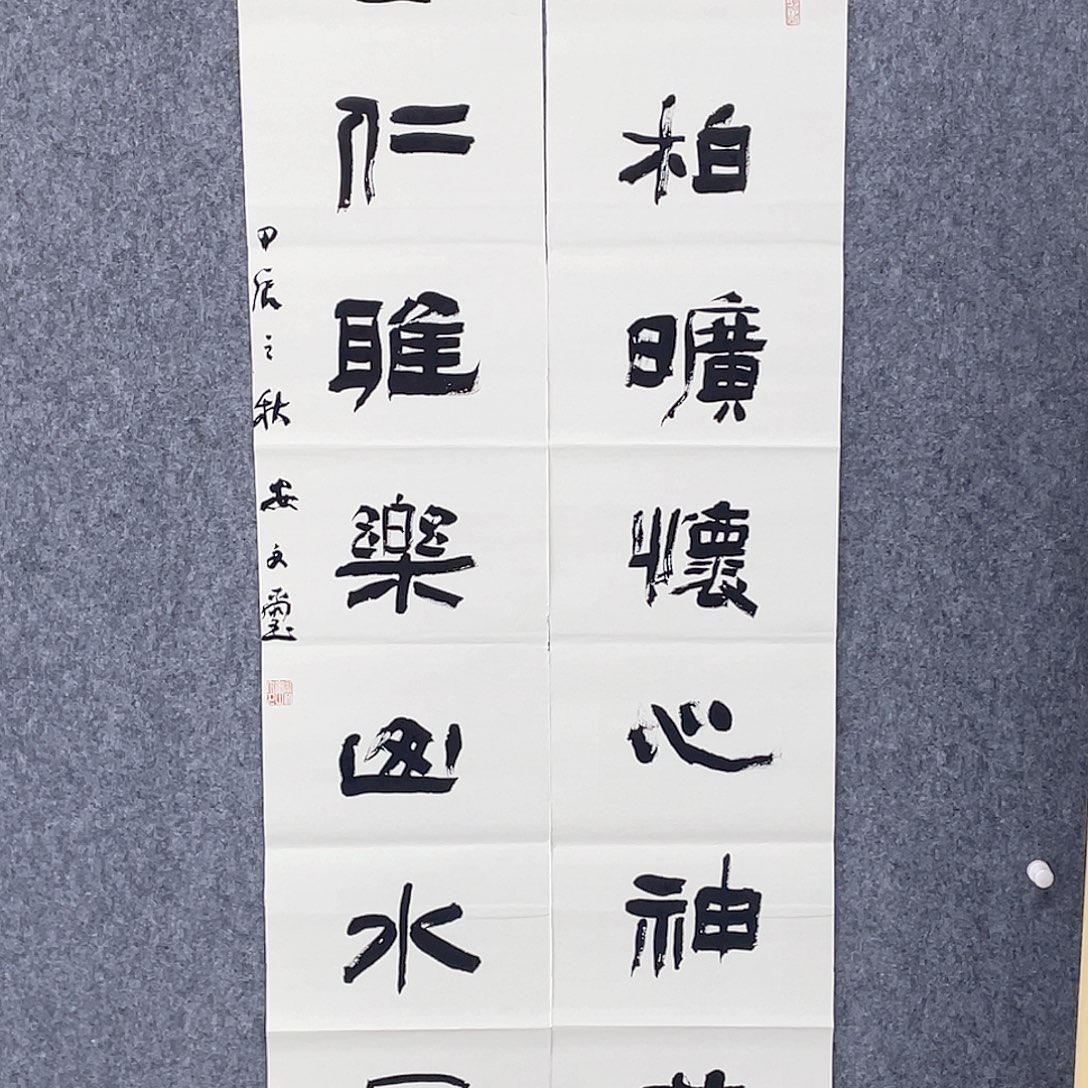 柏曠懷心神
仁雅樂山水
甲辰之秋 安文璽